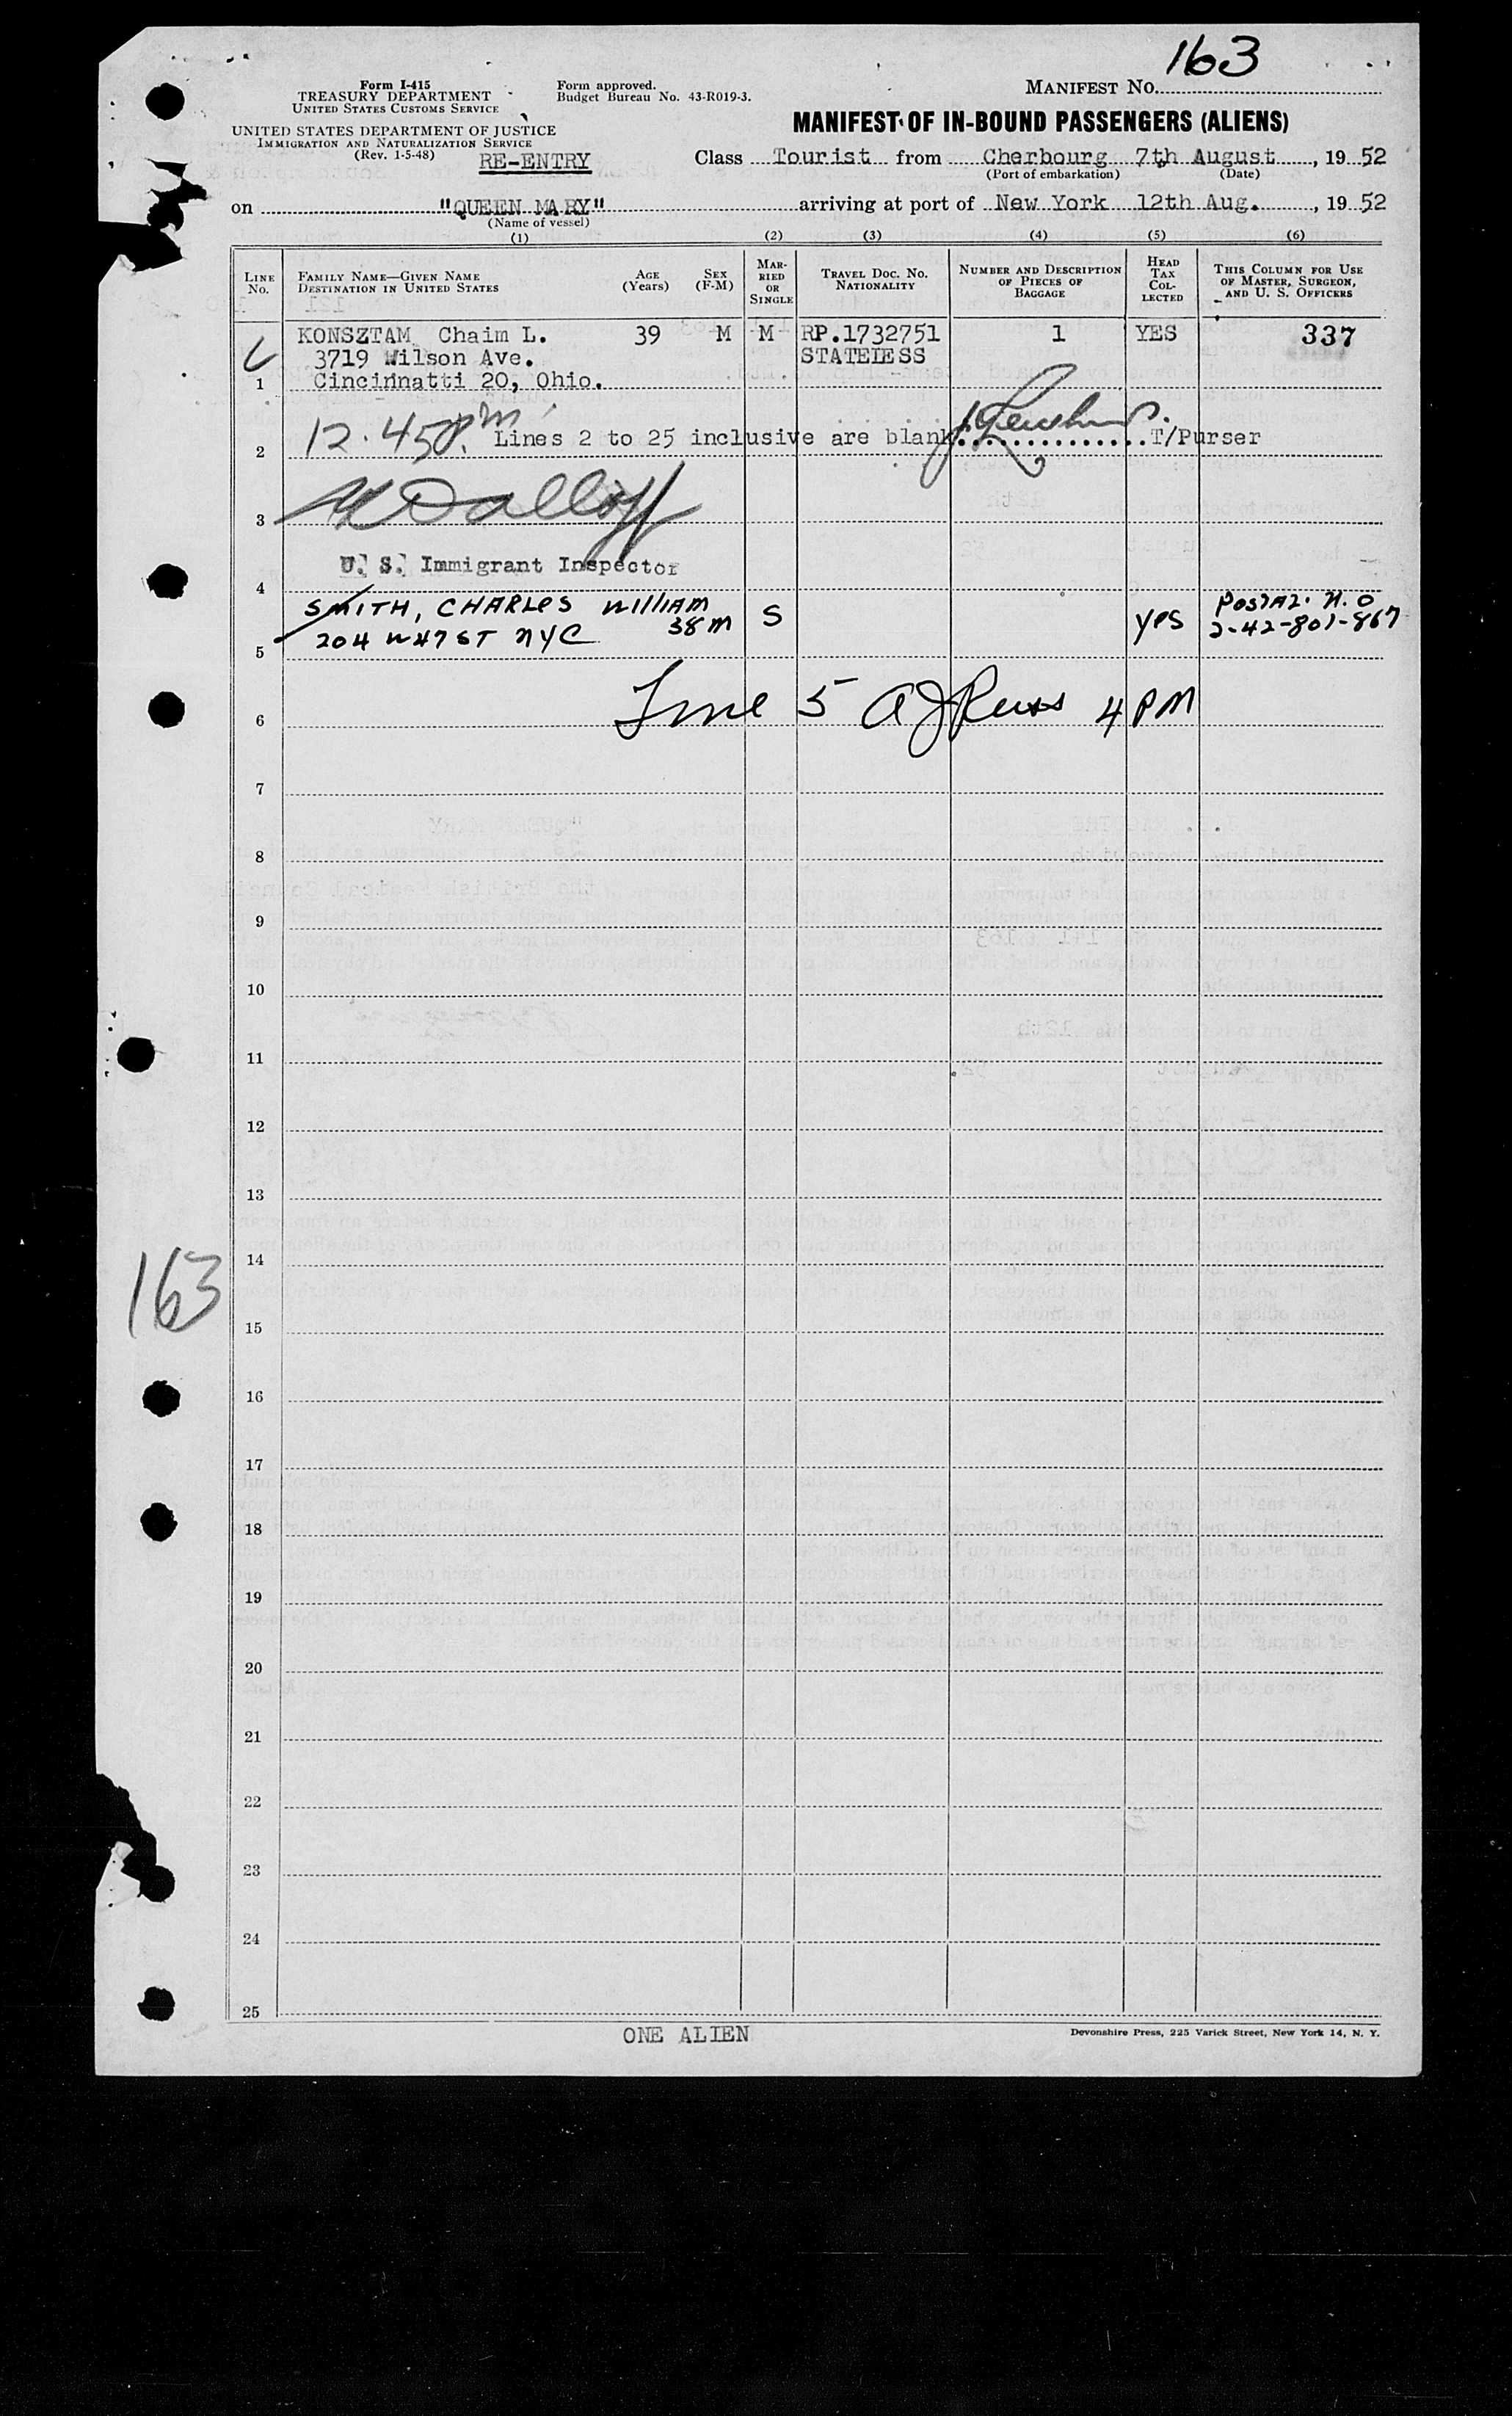 163
Form I-415
TREASURY DEPARTMENT
UNITED STATES CUSTOMS SERVICE
Form approved.
Budget Bureau No. 43-R019-3.
MANIFEST No.
UNITED STATES DEPARTMENT OF JUSTICE
IMMIGRATION AND NATURALIZATION SERVICE
(Rev. 1-5-48)
RE-ENTRY
MANIFEST OF IN-BOUND PASSENGERS (ALIENS)
Class Tourist from Cherbourg 7th August, 19 52
(Port of embarkation) (Date)
on "QUEEN MARY" arriving at port of New York 12th Aug., 19 52
(Name of vessel)
(1) (2) (3) (4) (5) (6)
LINE No. FAMILY NAME—GIVEN NAME DESTINATION IN UNITED STATES AGE (Years) SEX (F-M) MARRIED OR SINGLE TRAVEL DOC. NO. NATIONALITY NUMBER AND DESCRIPTION OF PIECES OF BAGGAGE HEAD TAX COLLECTED THIS COLUMN FOR USE OF MASTER, SURGEON, AND U. S. OFFICERS
KONSZTAM Chaim L. 39 M M RP.1732751 1 YES 337
3719 Wilson Ave. STATELESS
1 Cincinnatti 20, Ohio.
2 12.45 P.m Lines 2 to 25 inclusive are blank..............T/Purser
3
U. S. Immigrant Inspector
4
SMITH, CHARLES WILLIAM 38 M S yes POSTAL N.O
5 204 W 47 ST NYC 2-42-801-867
6 Line 5 A J Russ 4 PM
7
8
9
10
11
12
13
14
163
15
16
17
18
19
20
21
22
23
24
25
ONE ALIEN
Devonshire Press, 225 Varick Street, New York 14, N. Y.